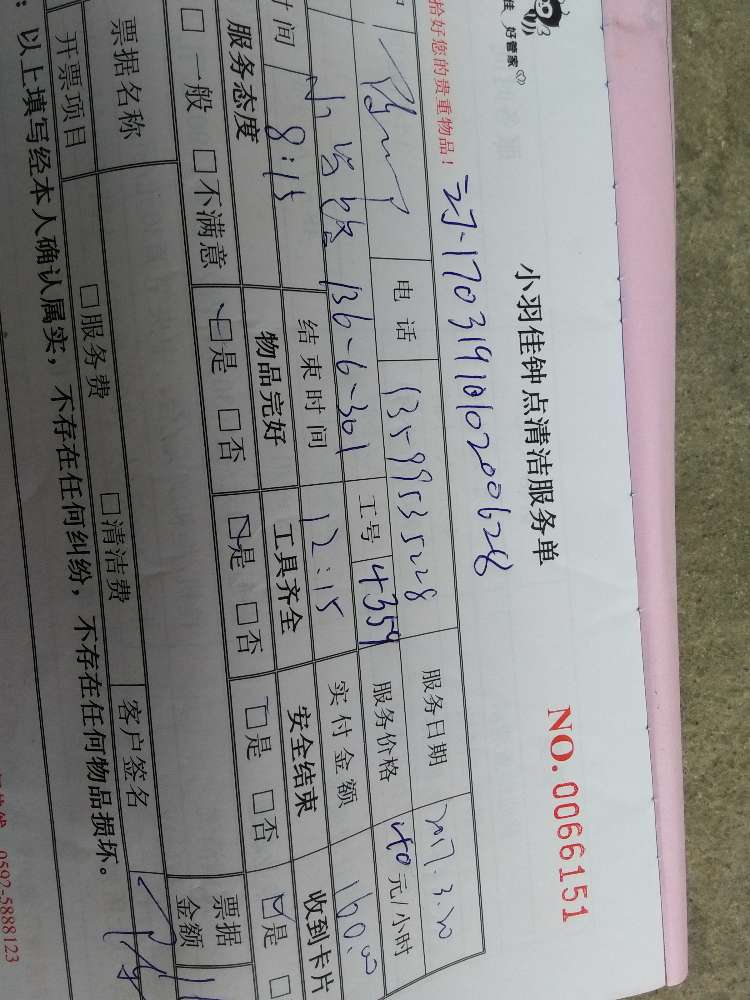 佳 好管家
小羽佳钟点清洁服务单
NO.0066151
拾好您的贵重物品！
170319101020 0628
电话 13599535228 服务日期 2017.3.20
136-6-301 工号 4359 服务价格 40元/小时
时间 8:15 结束时间 12:15 实付金额 160.00
服务态度 物品完好 工具齐全 安全结束 收到卡片
□一般 □不满意 □是 □否 □是 □否 □是 □否 □是 □
票据名称 票据金额
开票项目 □服务费 □清洁费 客户签名
：以上填写经本人确认属实，不存在任何纠纷，不存在任何物品损坏。
0592-5888123